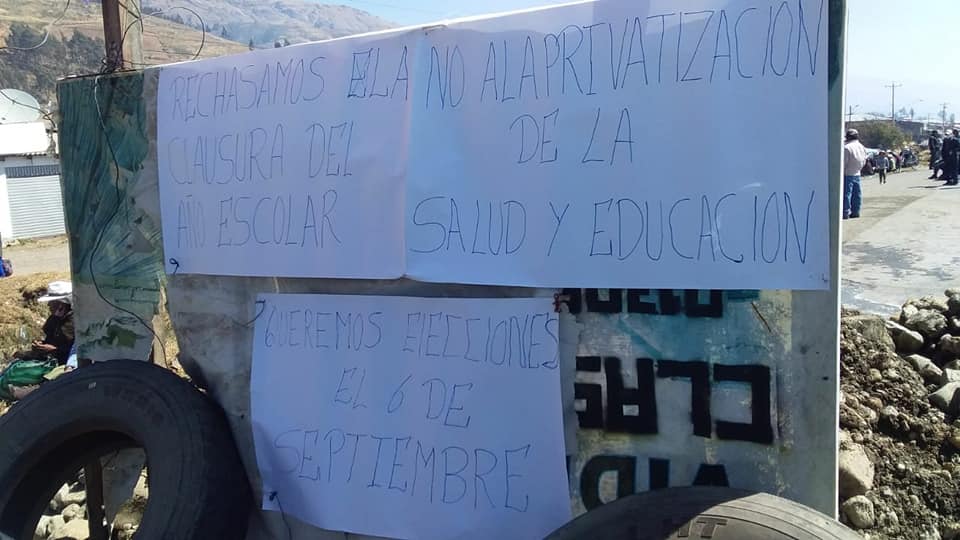 RECHASAMOS ELLA
CLAUSURA DEL
AÑO ESCOLAR
NO A LA PRIVATIZACION
DE LA
SALUD Y EDUCACION
QUEREMOS ELECCIONES
EL 6 DE
SEPTIEMBRE
CLAS
VID